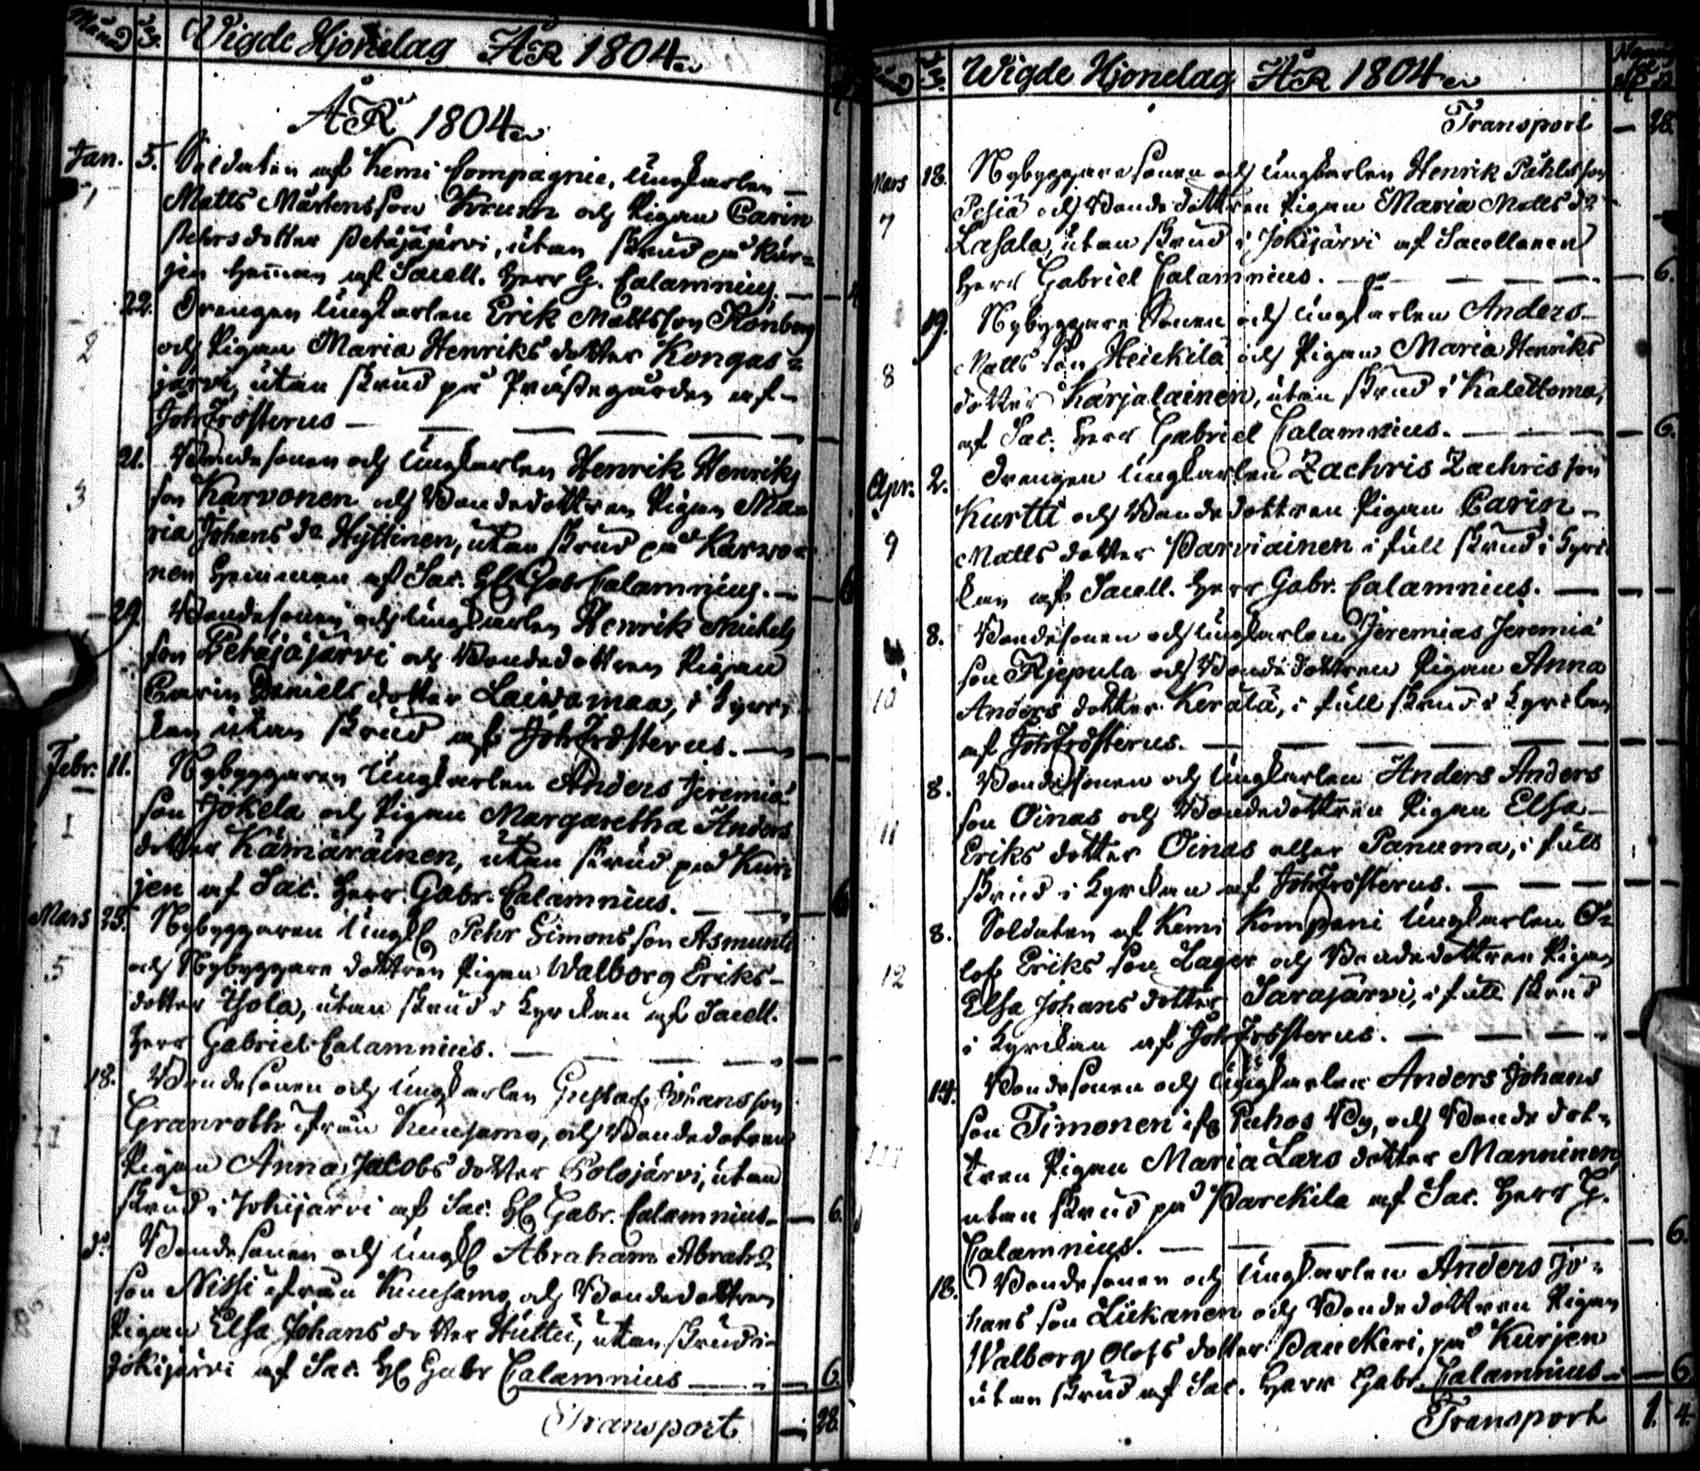 Månad D. Wigde Hjonelag ÅR 1804.
ÅR 1804.
Jan. 5. Soldaten af Kemi Compagnie, ungkarlen
1 Matts Mårtensson Krum och Pigan Carin
Pehrsdotter Petäjäjärvi, utan skrud på Kur=
jen heman af Sacell. Herr G. Calamnius.
22. Drengen ungkarlen Erik Mattsson Kónberg
2 och Pigan Maria Henriksdotter Kongas=
järvi, utan skrud på Prästegården af
Joh Frosterus
21. Bondesonen och ungkarlen Henrik Henriks
3 son Karvonen och Bondedottren Pigan Ma=
ria Johans dr Hyttinen, utan skrud på Karvo=
nen Hemman af Sac. Hr Gab Calamnius. 6
29. Bondesonen och ungkarlen Henrik Michels
son Petäjäjärvi och Bondedottren Pigan
Carin Daniels dotter Laiwamaa, i kyrc=
kan utan skrud af Joh Frosterus.
Febr. 11. Nybyggaren ungkarlen Anders Jeremiæ
son Jokela och Pigan Margaretha Anders
dotter Kämäräinen, utan skrud på Kur=
jen af Sac. Herr Gabr. Calamnius. 6
Mars Nybyggaren Ungk Pehr Simonsson Asmunti
5 och Nybyggare dottren Pigan Walborg Eriks=
dotter Ysola, utan skrud i kyrckan af Sacell.
Herr Gabriel Calamnius.
18. Bondesonen och ungkarlen Gustaf Johansson
Granroth ifrån Kuusamo, och Bondedottren
Pigan Anna Jacobs dotter Polojärvi, utan
skrud i Jokijärvi af Sac. Hr Gabr. Calamnius. 6.
do Bondesonen och ungk Abraham Abrah=
son Nissi ifrån Kuusamo och Bondedottren
Pigan Elsa Johans dotter Huttu, utan skrud i
Jokijärvi af Sac. Hr Gabr Calamnius 6
Transport 28.
Wigde Hjonelag ÅR 1804
Transport 28.
Mars 18. Nybyggare sonen och ungkarlen Henrik Påhlsson
7 Pesiö och Bonde dottren Pigan Maria Matts dr
Lasala, utan skrud i Jokijärvi af Sacellanen
Herr Gabriel Calamnius. 6.
19. Nybyggare Sonen och ungkarlen Anders
8 Matts son Heickilä och Pigan Maria Henriks
dotter Karjalainen, utan skrud i Kalettoma,
af Sac. Herr Gabriel Calamnius. 6.
Apr. 2. Drengen ungkarlen Zachris Zachris son
Kurtti och Bondedottren Pigan Carin
9 Matts dotter Parviainen i full skrud i kyrc
kan af Sacell. Herr Gabr. Calamnius.
8. Bondesonen och ungkarlen Jeremias Jeremiæ
son Riepula och Bonde dottren Pigan Anna
10 Anders dotter Kerälä, i full skrud i kyrckan
af Joh Frosterus.
8. Bondesonen och ungkarlen Anders Anders
son Oinas och Bondedottren Pigan Elsa
11 Eriks dotter Oinas eller Panuma, i full
skrud i kyrckan af Joh Frosterus.
8. Soldaten af Kemi Kompani ungkarlen O=
lof Eriks son Lager och Bondedottren Pigan
12 Elsa Johans dotter Sarajärvi, i full skrud
i kyrckan af Joh Frosterus.
14. Bondesonen och ungkarlen Anders Johans
son Timonen ifr Puhos By, och Bonde dot=
tren Pigan Maria Lars dotter Manninen
utan skrud på Parckila af Sac. Herr G.
Calamnius. 6.
18. Bondesonen och ungkarlen Anders Jo=
hans son Liikanen och Bondedottren Pigan
Walborg Olofs dotter Panckeri, på Kurjen
utan skrud af Sac. Herr Gabr. Calamnius 6
Transport 1. 4.